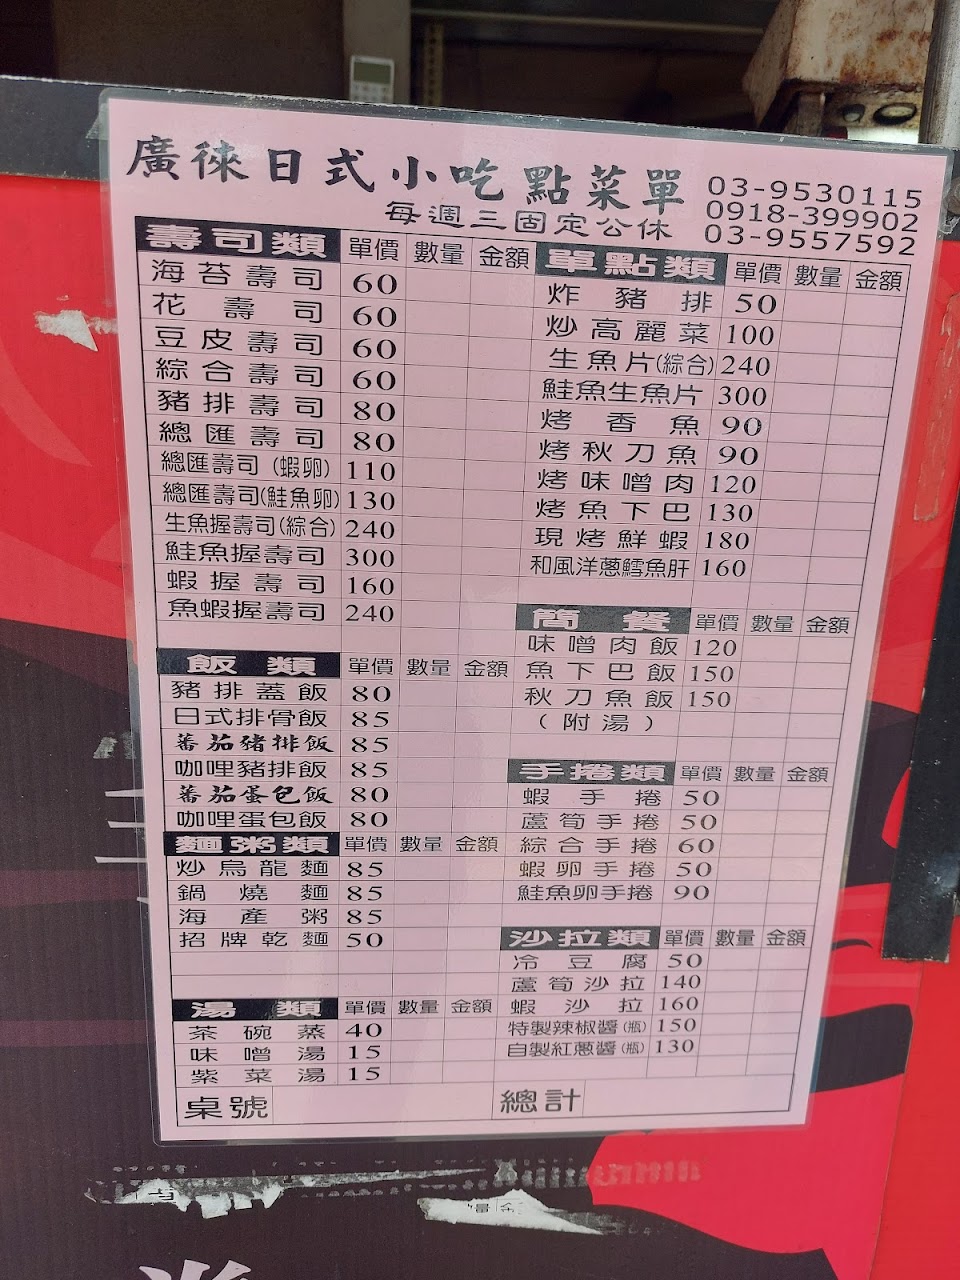 廣徠日式小吃點菜單
每週三固定公休
03-9530115
0918-399902
03-9557592
壽司類 單價 數量 金額
海苔壽司 60
花壽司 60
豆皮壽司 60
綜合壽司 60
豬排壽司 80
總匯壽司 80
總匯壽司(蝦卵) 110
總匯壽司(鮭魚卵) 130
生魚握壽司(綜合) 240
鮭魚握壽司 300
蝦握壽司 160
魚蝦握壽司 240
飯類 單價 數量 金額
豬排蓋飯 80
日式排骨飯 85
蕃茄豬排飯 85
咖哩豬排飯 85
蕃茄蛋包飯 80
咖哩蛋包飯 80
麵粥類 單價 數量 金額
炒烏龍麵 85
鍋燒麵 85
海產粥 85
招牌乾麵 50
湯類 單價 數量 金額
茶碗蒸 40
味噌湯 15
紫菜湯 15
桌號
單點類 單價 數量 金額
炸豬排 50
炒高麗菜 100
生魚片(綜合) 240
鮭魚生魚片 300
烤香魚 90
烤秋刀魚 90
烤味噌肉 120
烤魚下巴 130
現烤鮮蝦 180
和風洋蔥鱈魚肝 160
簡餐 單價 數量 金額
味噌肉飯 120
魚下巴飯 150
秋刀魚飯 150
(附湯)
手捲類 單價 數量 金額
蝦手捲 50
蘆筍手捲 50
綜合手捲 60
蝦卵手捲 50
鮭魚卵手捲 90
沙拉類 單價 數量 金額
冷豆腐 50
蘆筍沙拉 140
蝦沙拉 160
特製辣椒醬(瓶) 150
自製紅蔥醬(瓶) 130
總計